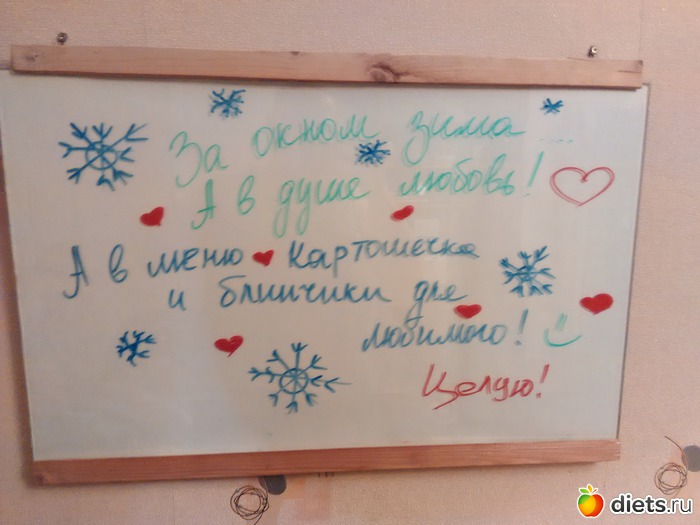 За окном зима ....
А в душе любовь!
А в меню Картошечка
и блинчики для
любимого!
Целую!
diets.ru